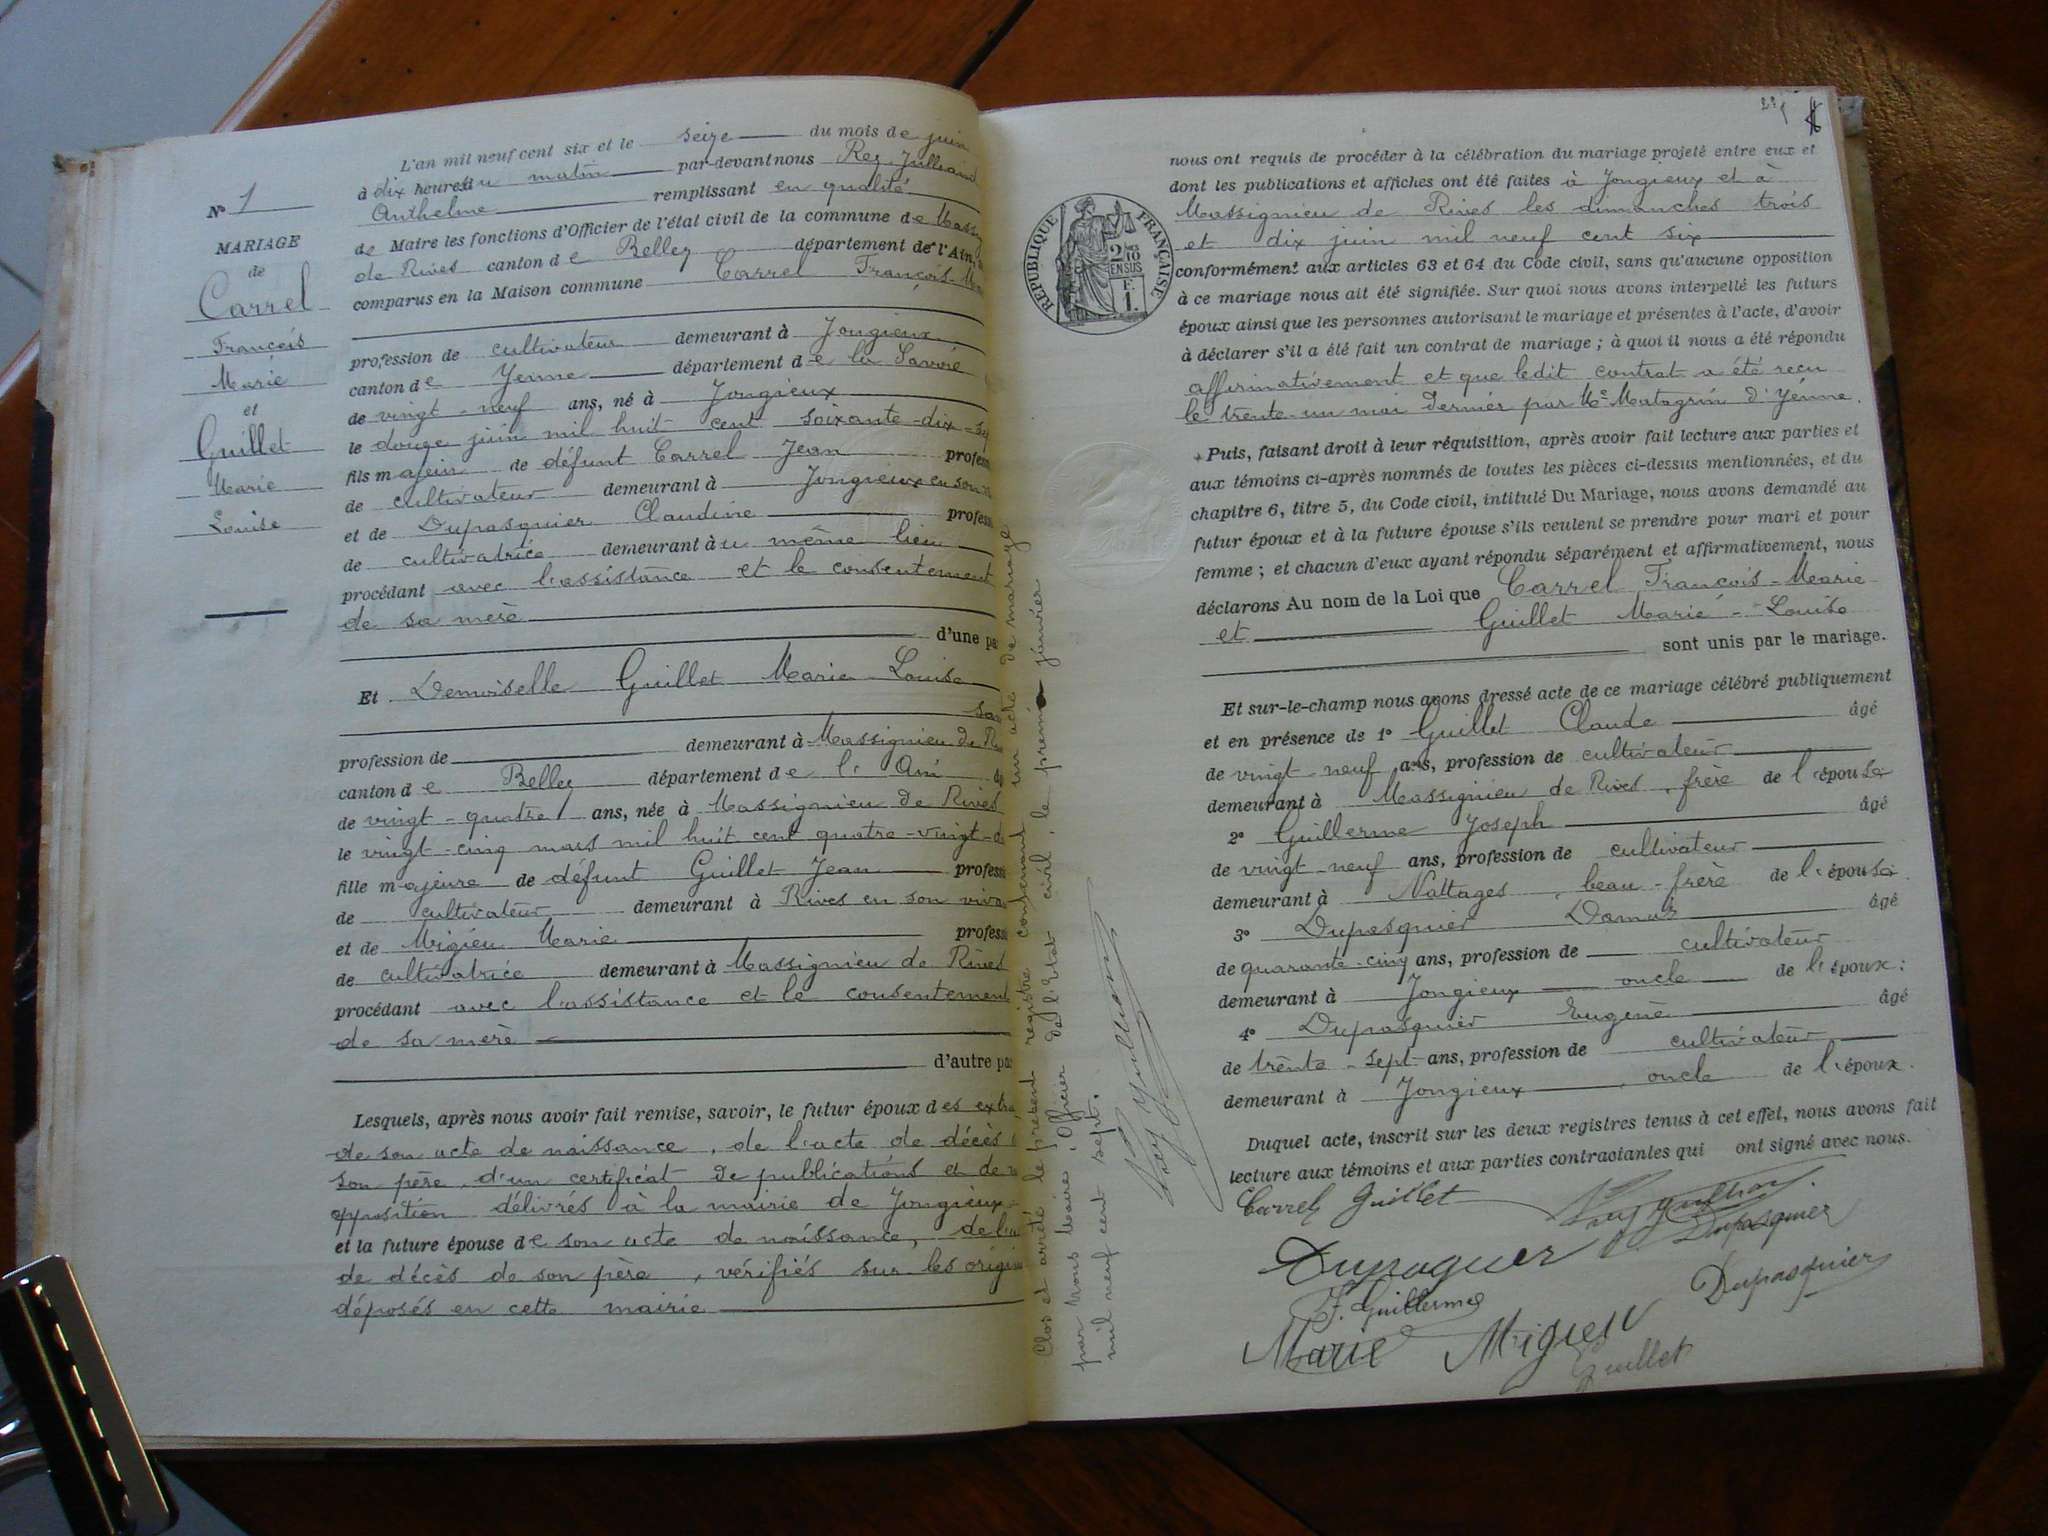 L'an mil neuf cent six et le seize du mois de juin
à dix heures du matin par-devant nous Rey-Jullian
Anthelme remplissant en qualité
de Maire les fonctions d'Officier de l'état civil de la commune de Mass
de Rives canton de Belley département de l'Ain,
comparus en la Maison commune Carrel François-Ma
N° 1
MARIAGE
de
Carrel
François
Marie
et
Guillet
Marie
Louise
profession de cultivateur demeurant à Jongieux
canton de Yenne département de la Savoie
de vingt-neuf ans, né à Jongieux
le douze juin mil huit cent soixante-dix-sep
fils majeur de défunt Carrel Jean profess
de cultivateur demeurant à Jongieux en son
et de Dupasquier Claudine profess
de cultivatrice demeurant au même lieu
procédant avec l'assistance et le consentement
de sa mère
d'une pa
Et Demoiselle Guillet Marie Louise
profession de sa demeurant à Massignieu de Ri
canton de Belley département de l'Ain
de vingt-quatre ans, née à Massignieu de Rives
le vingt-cinq mars mil huit cent quatre-vingt-d
fille majeure de défunt Guillet Jean professi
de cultivateur demeurant à Rives en son viva
et de Migieu Marie professi
de cultivatrice demeurant à Massignieu de Rives
procédant avec l'assistance et le consentement
de sa mère
d'autre par
Lesquels, après nous avoir fait remise, savoir, le futur époux des extra
de son acte de naissance, de l'acte de décès
son père, d'un certificat de publications et de
opposition délivrés à la mairie de Jongieux
et la future épouse de son acte de naissance, de l'a
de décès de son père, vérifiés sur les origin
déposés en cette mairie
Clos et arrêté le présent registre contenant un acte de mariage
par nous Maire, Officier de l'Etat civil, le premier janvier
mil neuf cent sept.
Rey Jullian
RÉPUBLIQUE FRANÇAISE
2/10
EN SUS
F.
1.
nous ont requis de procéder à la célébration du mariage projeté entre eux et
dont les publications et affiches ont été faites à Jongieux et à
Massignieu de Rives les dimanches trois
et dix juin mil neuf cent six
conformément aux articles 63 et 64 du Code civil, sans qu'aucune opposition
à ce mariage nous ait été signifiée. Sur quoi nous avons interpellé les futurs
époux ainsi que les personnes autorisant le mariage et présentes à l'acte, d'avoir
à déclarer s'il a été fait un contrat de mariage ; à quoi il nous a été répondu
affirmativement et que ledit contrat a été reçu
le trente-un mai dernier par Me Matagrin d'Yenne.
Puis, faisant droit à leur réquisition, après avoir fait lecture aux parties et
aux témoins ci-après nommés de toutes les pièces ci-dessus mentionnées, et du
chapitre 6, titre 5, du Code civil, intitulé Du Mariage, nous avons demandé au
futur époux et à la future épouse s'ils veulent se prendre pour mari et pour
femme ; et chacun d'eux ayant répondu séparément et affirmativement, nous
déclarons Au nom de la Loi que Carrel François-Marie
et Guillet Marie-Louise
sont unis par le mariage.
Et sur-le-champ nous avons dressé acte de ce mariage célébré publiquement
et en présence de 1° Guillet Claude âgé
de vingt-neuf ans, profession de cultivateur
demeurant à Massignieu de Rives, frère de l'épouse
2° Guillerme Joseph âgé
de vingt-neuf ans, profession de cultivateur
demeurant à Nattages, beau-frère de l'épouse
3° Dupasquier âgé
de quarante-cinq ans, profession de cultivateur
demeurant à Jongieux oncle de l'époux :
4° Dupasquier Eugène âgé
de trente-sept ans, profession de cultivateur
demeurant à Jongieux, oncle de l'époux.
Duquel acte, inscrit sur les deux registres tenus à cet effet, nous avons fait
lecture aux témoins et aux parties contractantes qui ont signé avec nous.
Carrel Guillet Rey Jullian
Dupasquier Dupasquier
J. Guillerme Dupasquier
Marie Migieu
Guillet